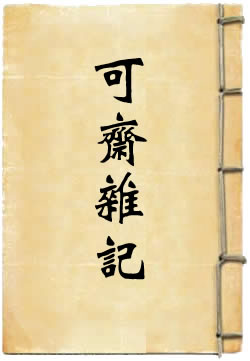 可齋雜記